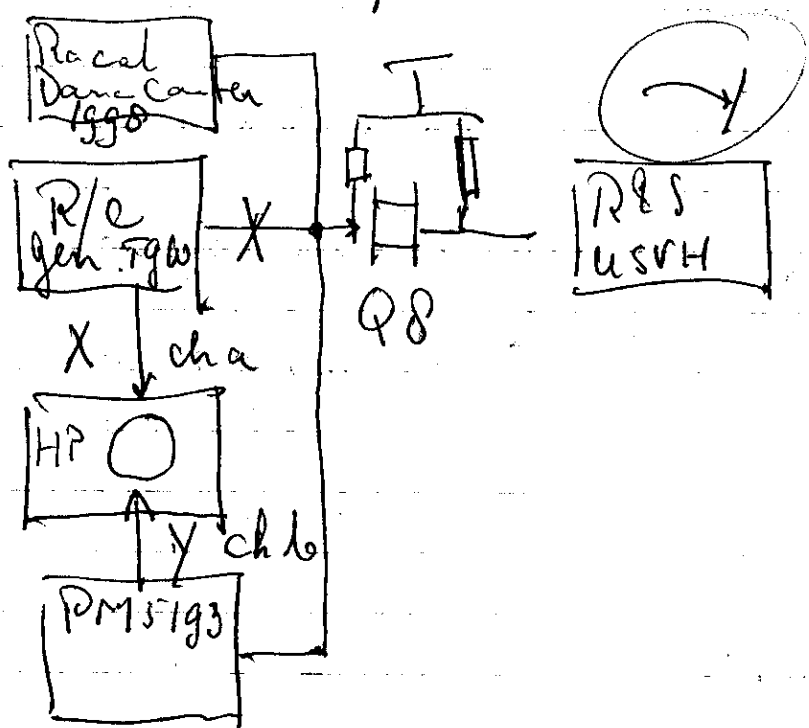 Racal
Dana Counter
1998
R/C
gen.
X
Q8
R&S
USVH
X ch a
HP
Y ch b
PM5193